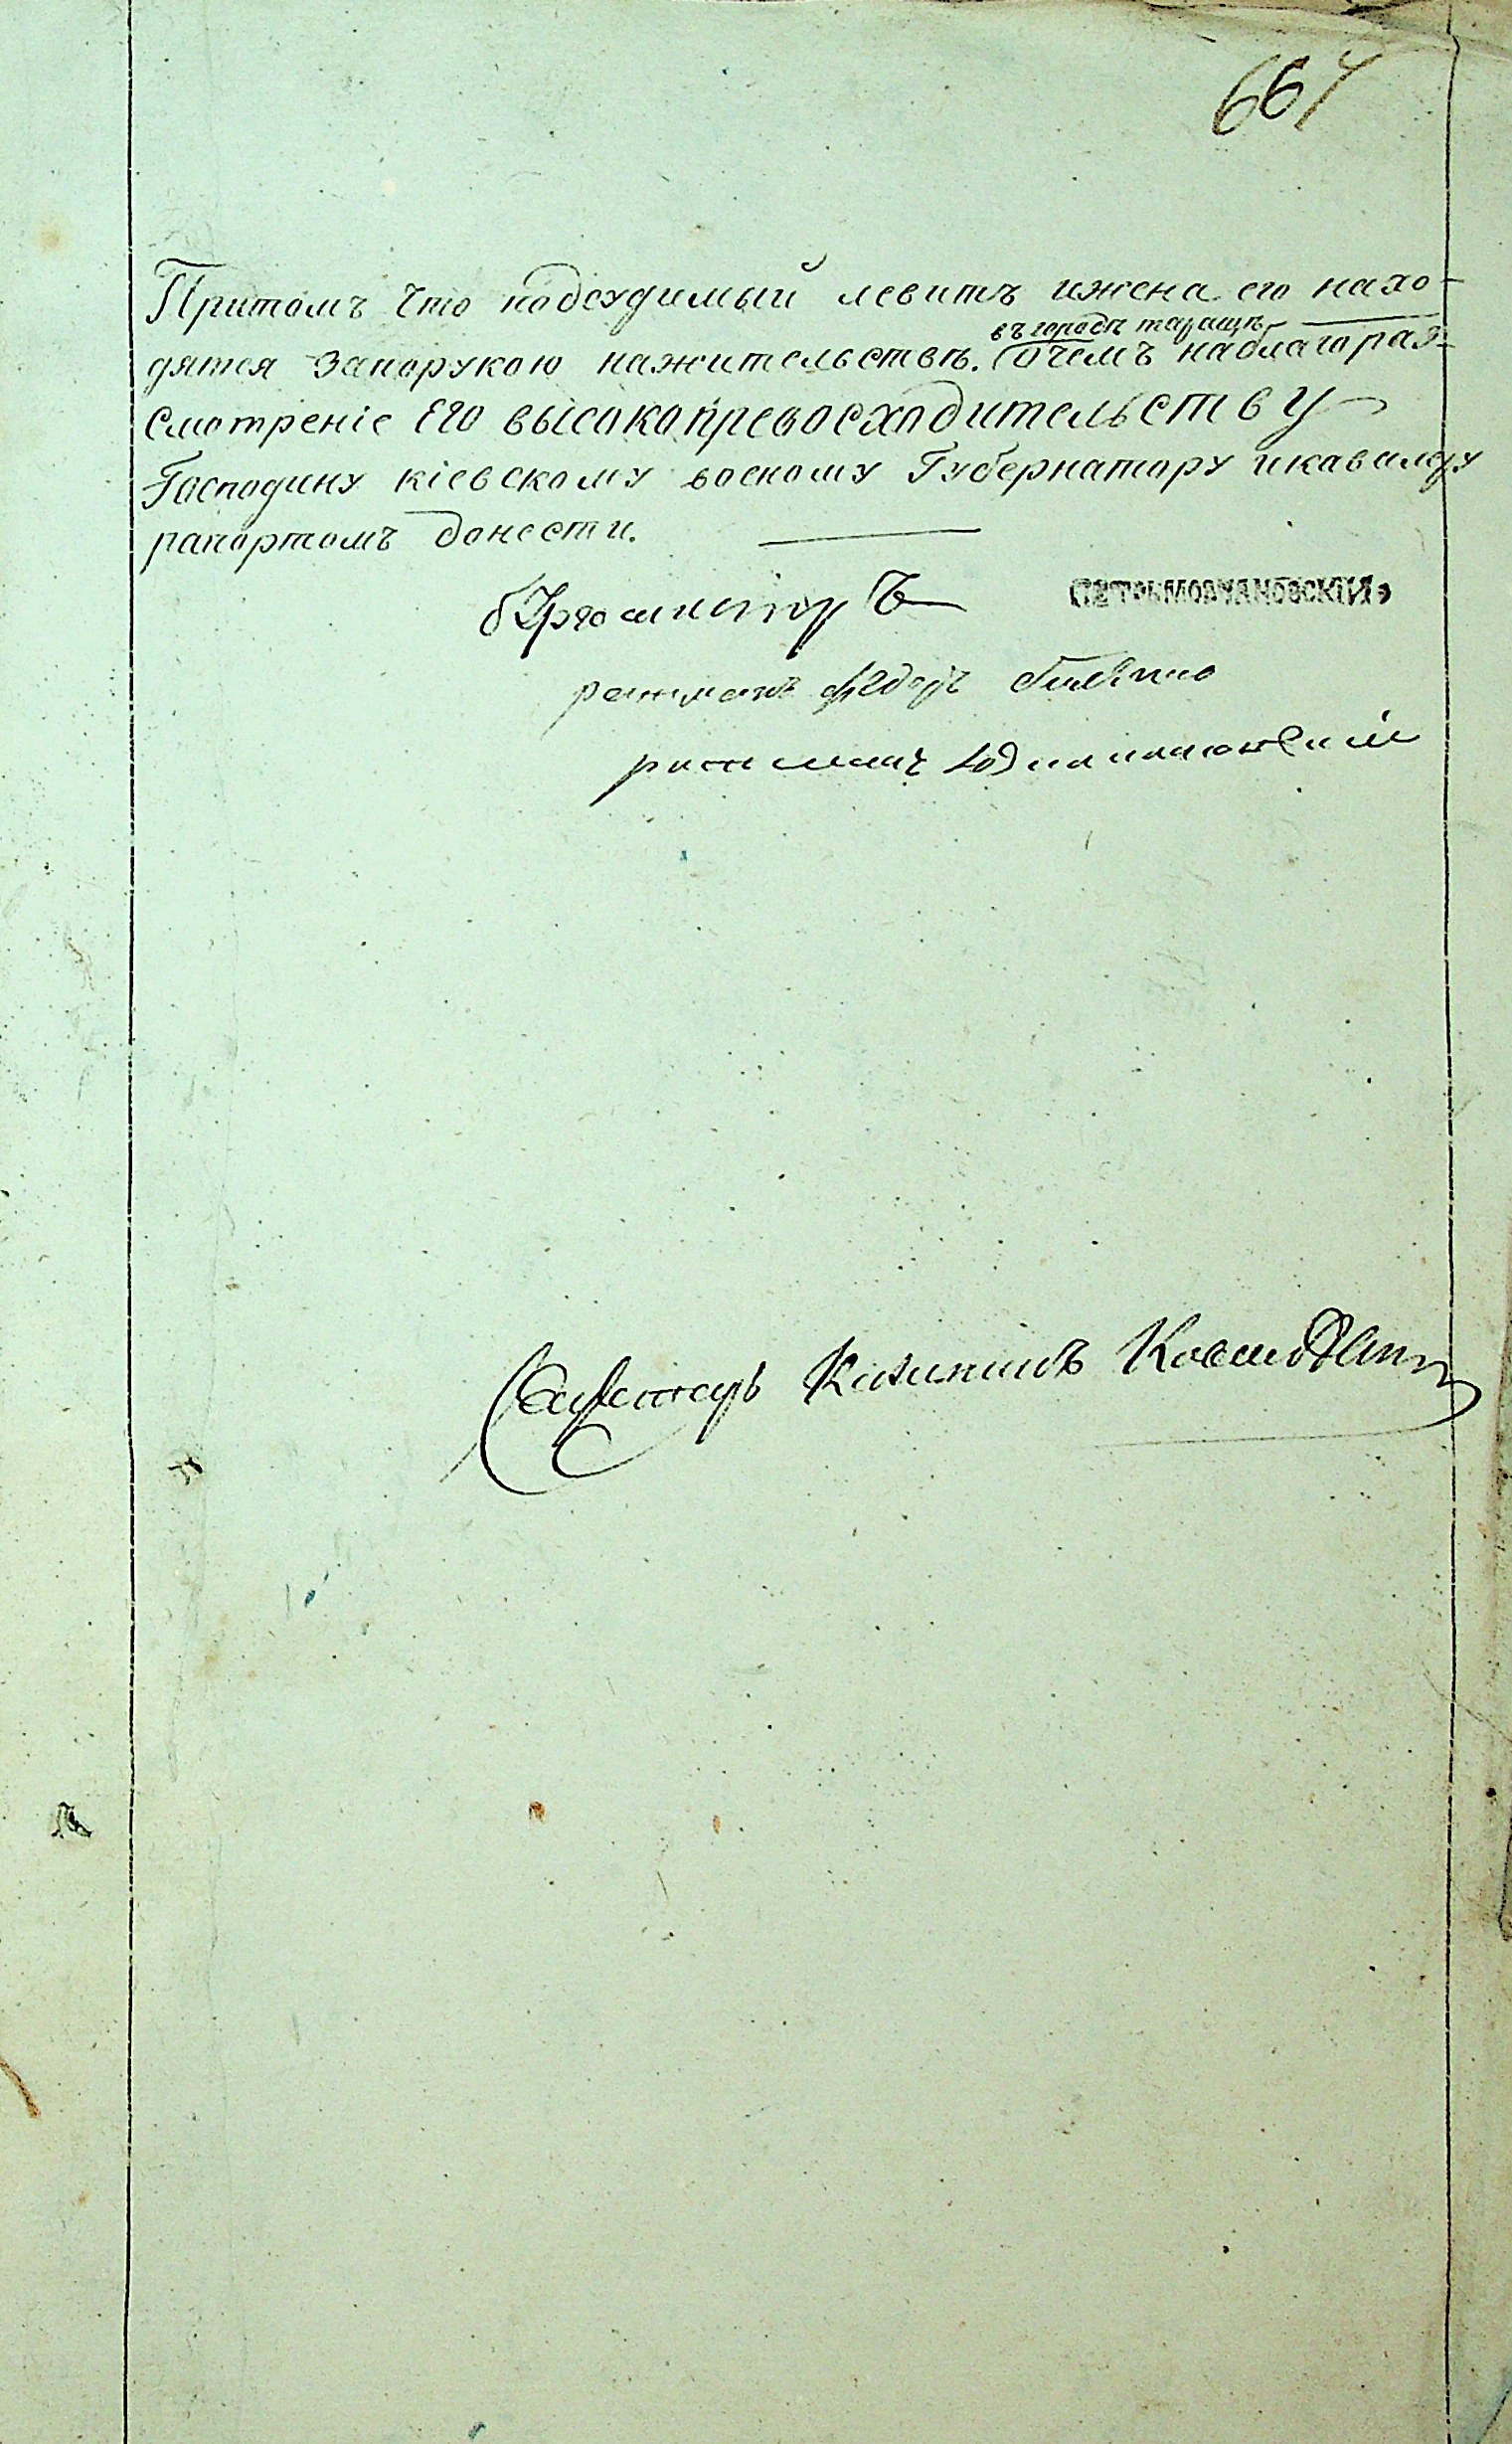 664
Притомъ что подсудимый левитъ ижена его нахо-
въ городѣ таращѣ
дятся запорукою нажительствѣ. очемъ наблагораз-
смотреніе Его высокопревосходительству
Господину кіевскому военому Губернатору икавалеру
рапортомъ донести.
бургомистръ ПЕТРЪ МОВЧАНОВСКІЙ
ратманъ федоръ
ратманъ
Секретарь